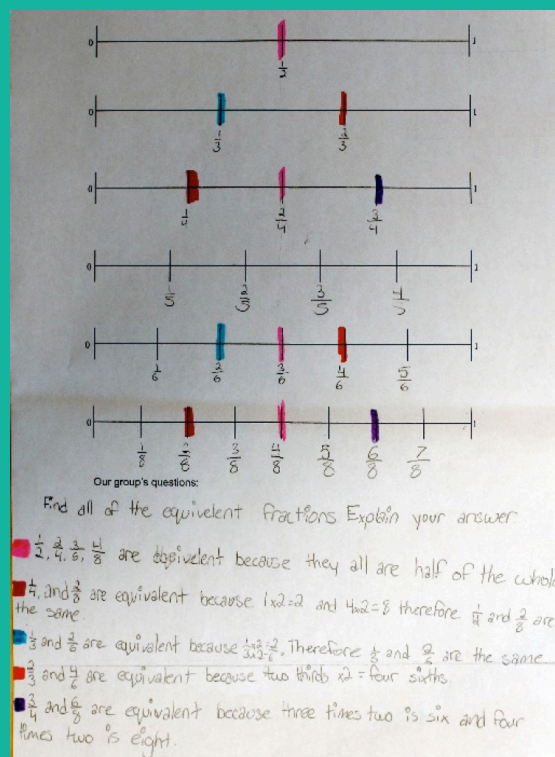 0 1
1/2
0 1
1/3 2/3
0 1
1/4 2/4 3/4
0 1
1/5 2/5 3/5 4/5
0 1
1/6 2/6 3/6 4/6 5/6
0 1
1/8 2/8 3/8 4/8 5/8 6/8 7/8
Our group's questions:
Find all of the equivelent fractions Explain your answer.
1/2, 2/4, 3/6, 4/8 are equivelent because they all are half of the whole
1/4, and 2/8 are equivalent because 1x2=2 and 4x2=8 therefore 1/4 and 2/8 are
the same.
1/3 and 2/6 are equivalent because 1x2=2/3x2=6. Therefore 1/3 and 2/6 are the same
2/3 and 4/6 are equivalent because two thirds x2 = four sixths.
3/4 and 6/8 are equivalent because three times two is six and four
times two is eight.